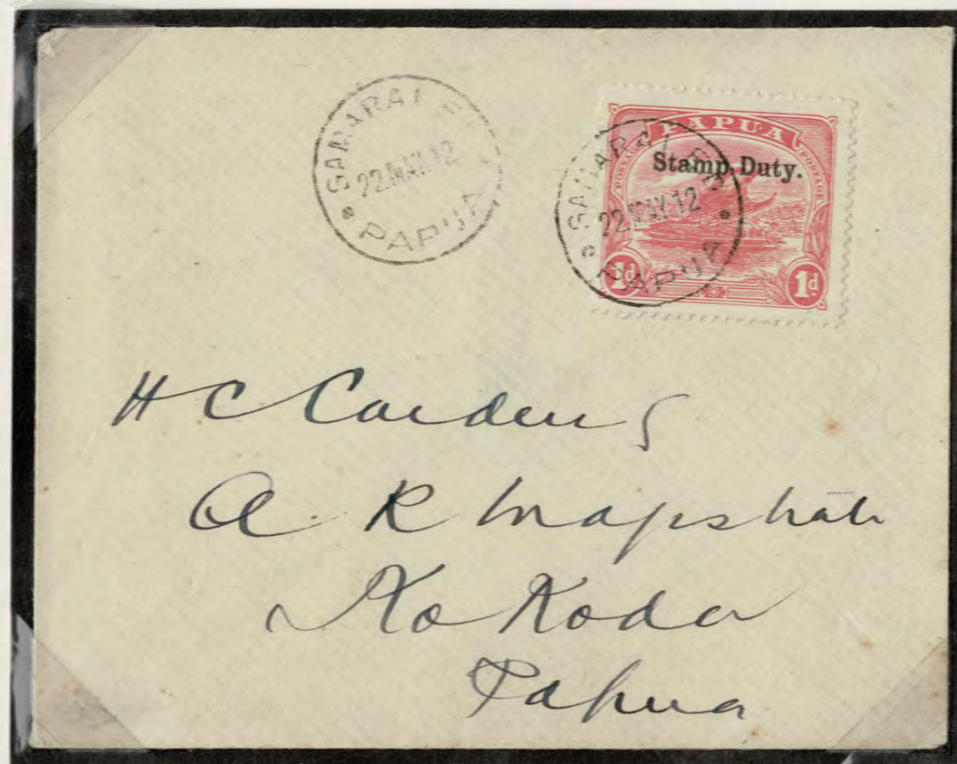 SAMARAI
22.MAY.12
PAPUA
PAPUA
POSTAGE
POSTAGE
Stamp Duty.
SAMARAI
22.MAY.12
PAPUA
1d
1d
H C Carden
A R Magistrate
KoKoda
Papua